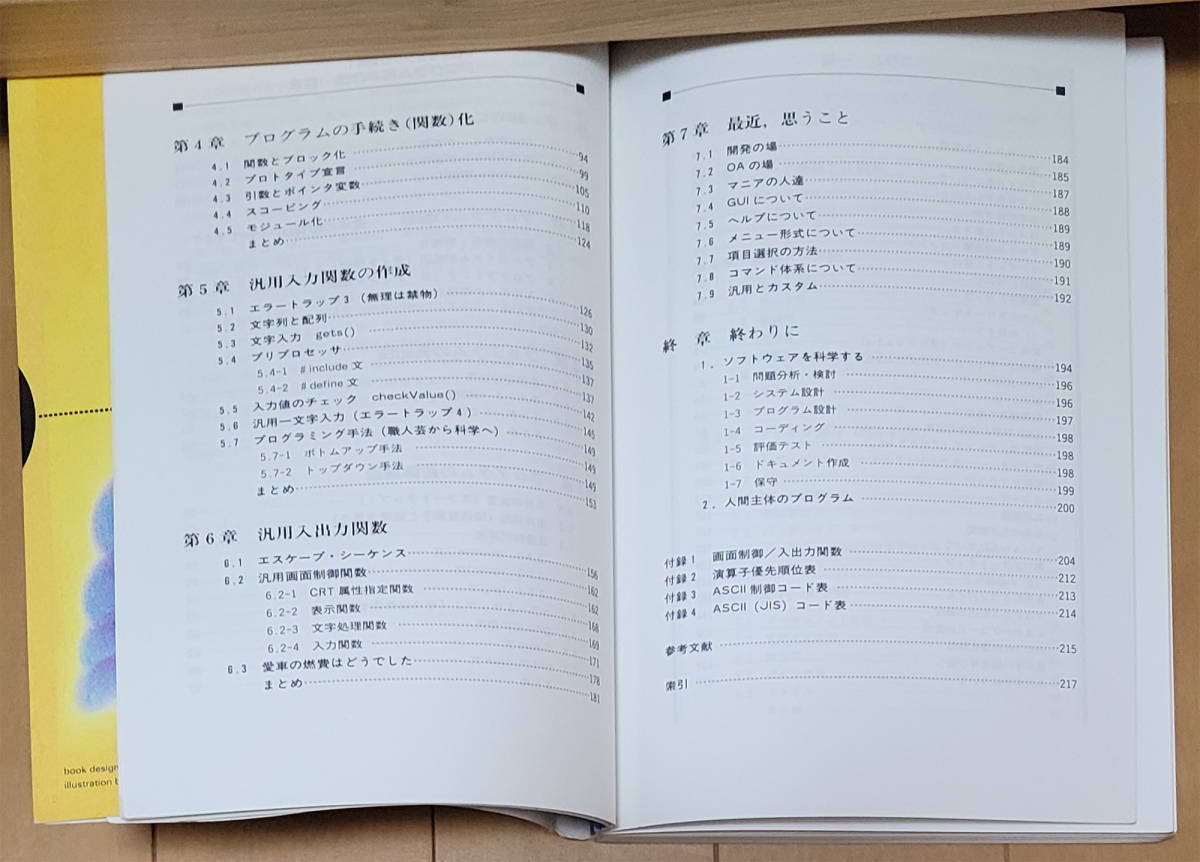 第4章 プログラムの手続き(関数)化
4.1 関数とブロック化 94
4.2 プロトタイプ宣言 99
4.3 引数とポインタ変数 105
4.4 スコーピング 110
4.5 モジュール化 118
まとめ 124
第5章 汎用入力関数の作成
5.1 エラートラップ3 (無理は禁物) 126
5.2 文字列と配列 130
5.3 文字入力 gets() 132
5.4 プリプロセッサ 135
5.4-1 #include 文 137
5.4-2 #define 文 137
5.5 入力値のチェック checkValue() 142
5.6 汎用一文字入力 (エラートラップ4) 145
5.7 プログラミング手法 (職人芸から科学へ) 149
5.7-1 ボトムアップ手法 149
5.7-2 トップダウン手法 149
まとめ 153
第6章 汎用入出力関数
6.1 エスケープ・シーケンス 156
6.2 汎用画面制御関数 162
6.2-1 CRT 属性指定関数 162
6.2-2 表示関数 168
6.2-3 文字処理関数 169
6.2-4 入力関数 171
6.3 愛車の燃費はどうでした 178
まとめ 181
第7章 最近,思うこと
7.1 開発の場 184
7.2 OAの場 185
7.3 マニアの人達 187
7.4 GUI について 188
7.5 ヘルプについて 189
7.6 メニュー形式について 189
7.7 項目選択の方法 190
7.8 コマンド体系について 191
7.9 汎用とカスタム 192
終 章 終わりに
1. ソフトウェアを科学する 194
1-1 問題分析・検討 196
1-2 システム設計 196
1-3 プログラム設計 197
1-4 コーディング 198
1-5 評価テスト 198
1-6 ドキュメント作成 198
1-7 保守 199
2. 人間主体のプログラム 200
付録1 画面制御/入出力関数 204
付録2 演算子優先順位表 212
付録3 ASCII 制御コード表 213
付録4 ASCII (JIS) コード表 214
参考文献 215
索引 217
book design
illustration b